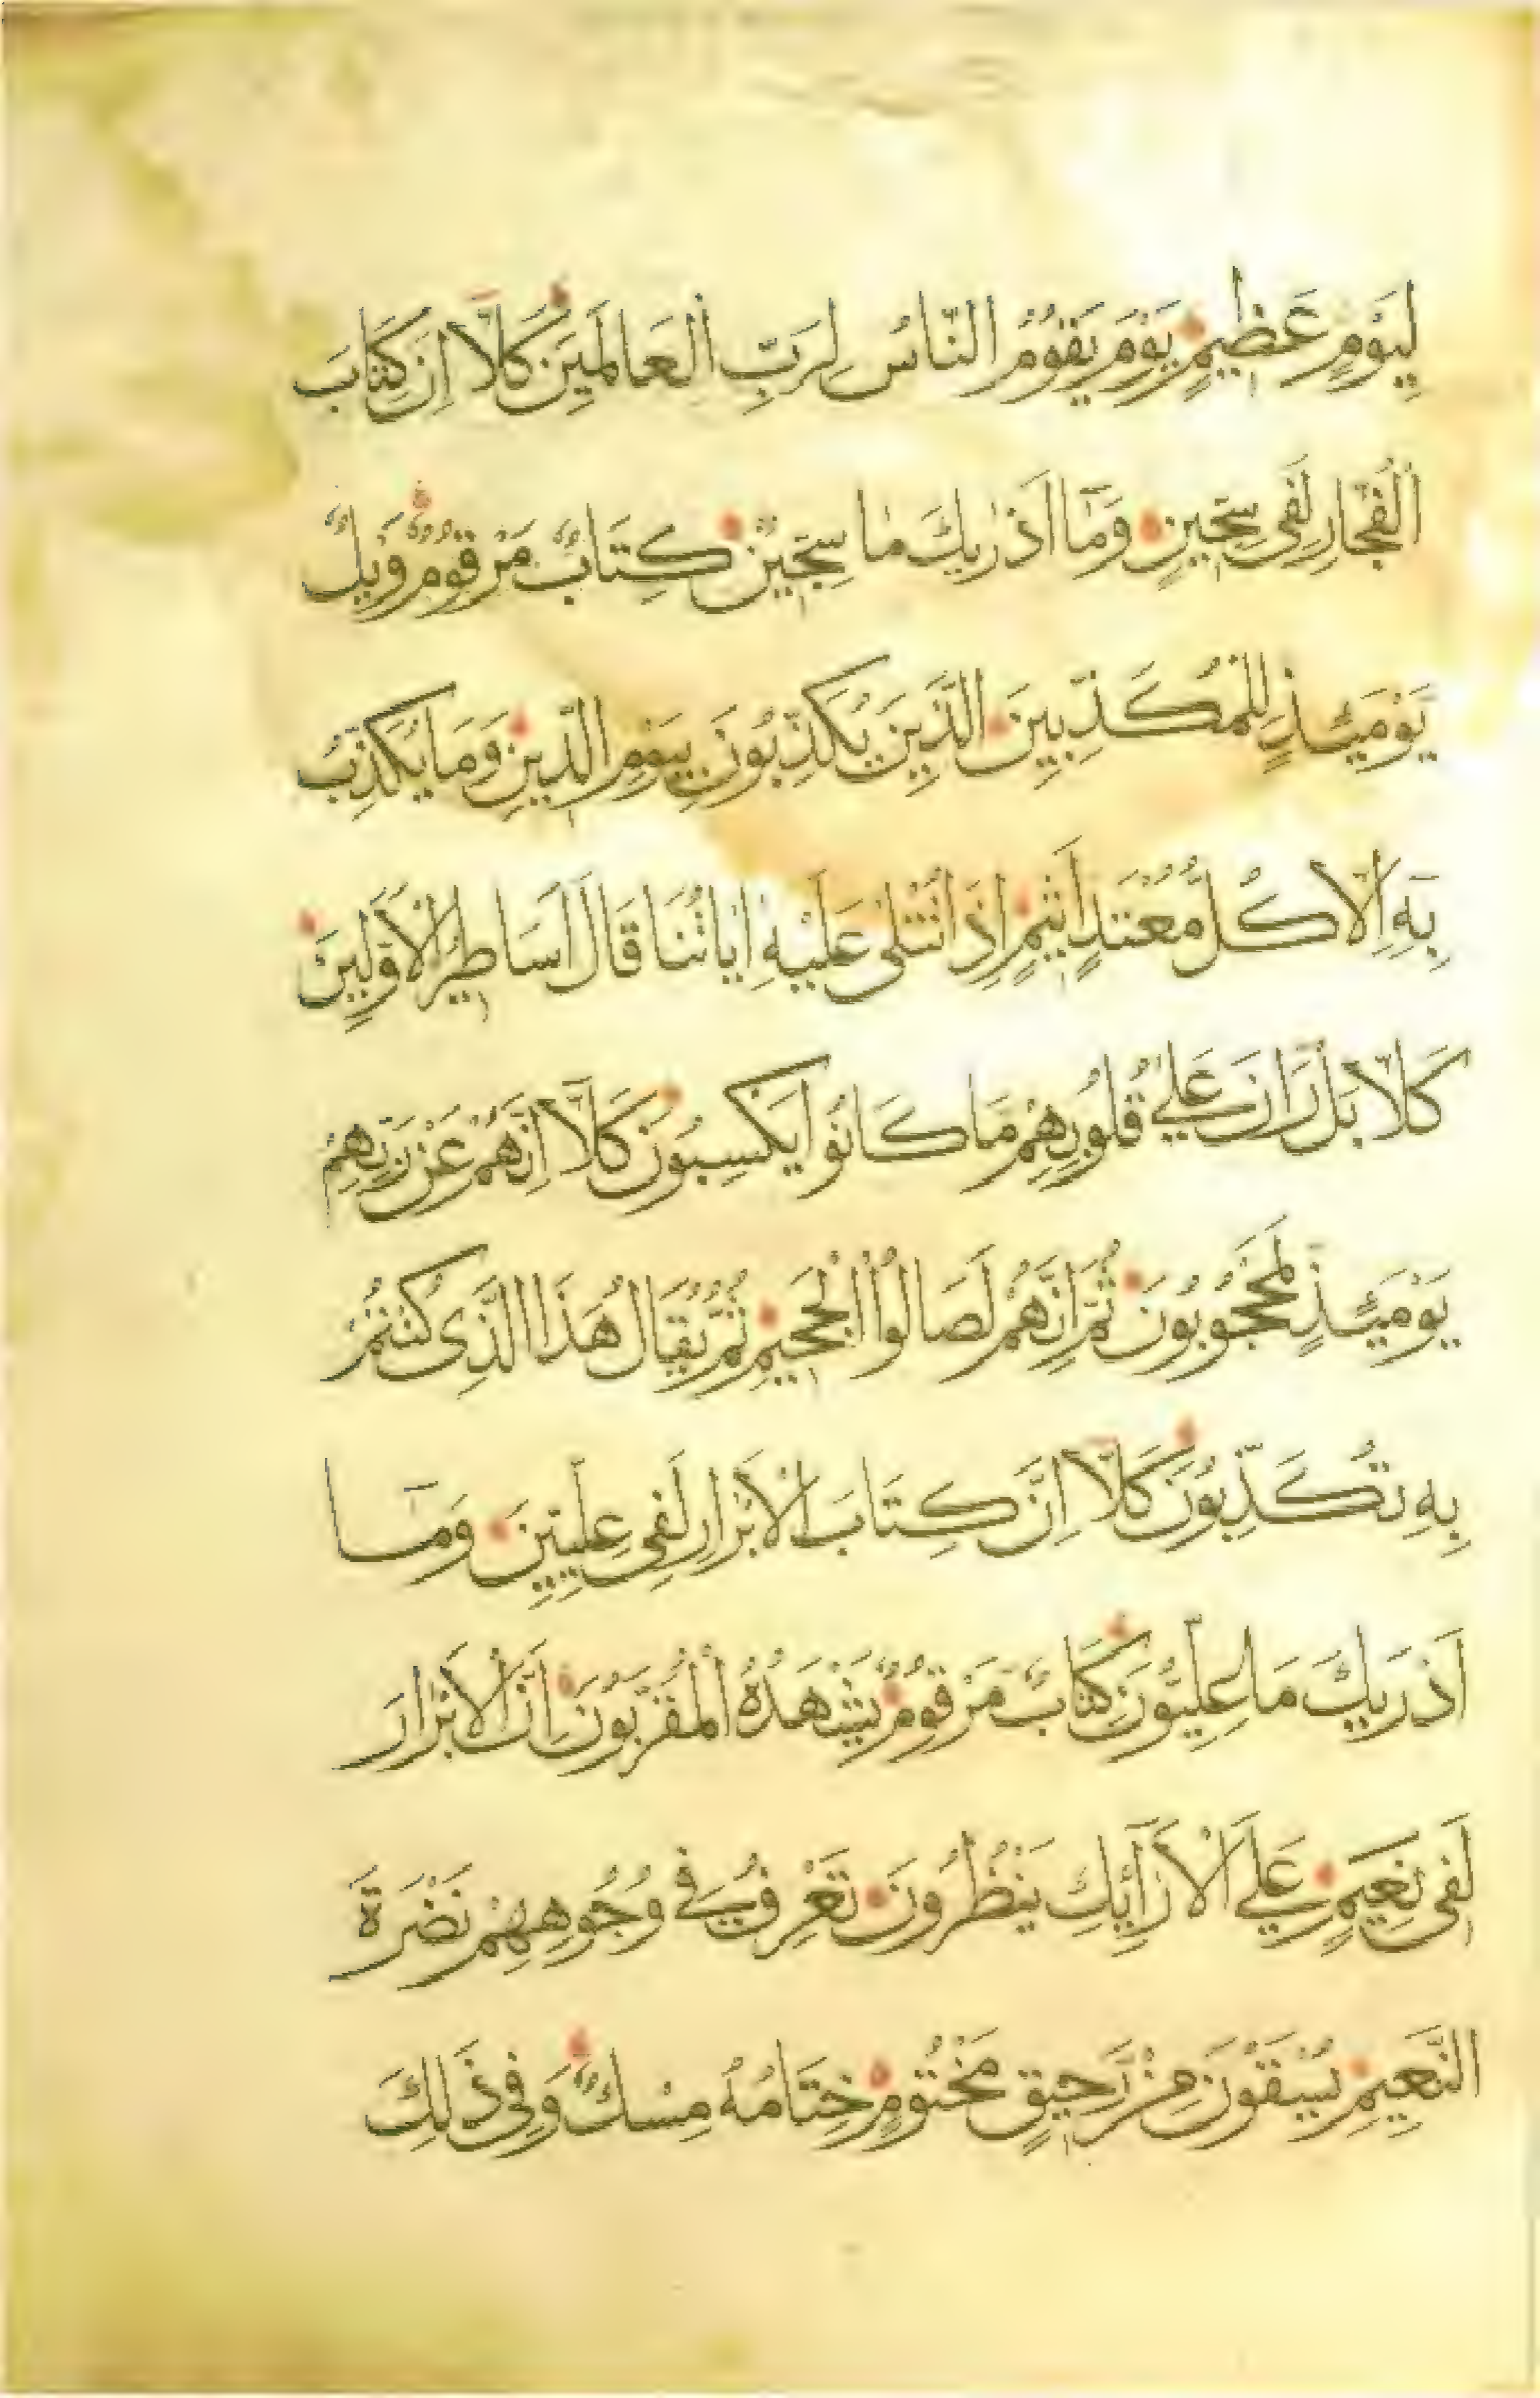 لِيَوْمٍ عَظِيمٍ يَوْمَ يَقُومُ النَّاسُ لِرَبِّ الْعَالَمِينَ كَلَّا اِنَّ كِتَابَ
الْفُجَّارِ لَفِى سِجِّينٍ وَمَا اَدْرٰيكَ مَا سِجِّينٌ كِتَابٌ مَرْقُومٌ وَيْلٌ
يَوْمَئِذٍ لِلْمُكَذِّبِينَ الَّذِينَ يُكَذِّبُونَ بِيَوْمِ الدِّينِ وَمَا يُكَذِّبُ
بِهِ اِلَّا كُلُّ مُعْتَدٍ اَثِيمٍ اِذَا تُتْلٰى عَلَيْهِ اٰيَاتُنَا قَالَ اَسَاطِيرُ الْاَوَّلِينَ
كَلَّا بَلْ رَانَ عَلٰى قُلُوبِهِمْ مَا كَانُوا يَكْسِبُونَ كَلَّا اِنَّهُمْ عَنْ رَبِّهِمْ
يَوْمَئِذٍ لَمَحْجُوبُونَ ثُمَّ اِنَّهُمْ لَصَالُوا الْجَحِيمِ ثُمَّ يُقَالُ هَذَا الَّذِى كُنْتُمْ
بِهِ تُكَذِّبُونَ كَلَّا اِنَّ كِتَابَ الْاَبْرَارِ لَفِى عِلِّيِّينَ وَمَا
اَدْرَيكَ مَا عِلِّيُّونَ كِتَابٌ مَرْقُومٌ يَشْهَدُهُ الْمُقَرَّبُونَ اِنَّ الْاَبْرَارَ
لَفِى نَعِيمٍ عَلَى الْاَرَآئِكِ يَنْظُرُونَ تَعْرِفُ فِى وُجُوهِهِمْ نَضْرَةَ
النَّعِيمِ يُسْقَوْنَ مِنْ رَحِيقٍ مَخْتُومٍ خِتَامُهُ مِسْكٌ وَفِى ذَلِكَ